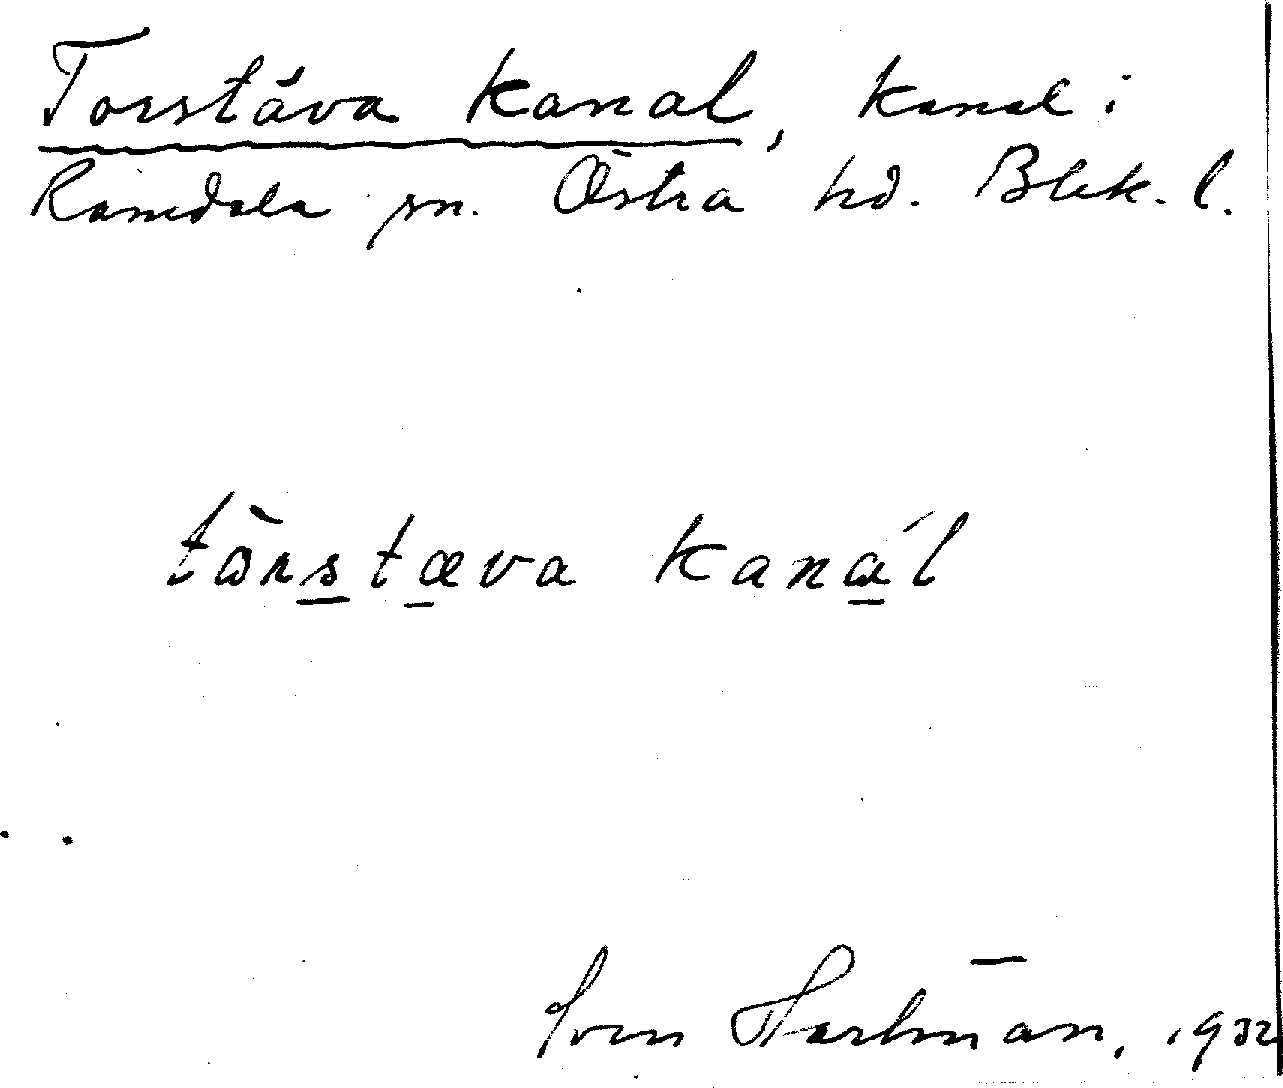 Torstäva kanal, kanal i
Ramdala sn. Östra hd. Blek. l.
tòrstæva kanál
Sven Hartman, 1932